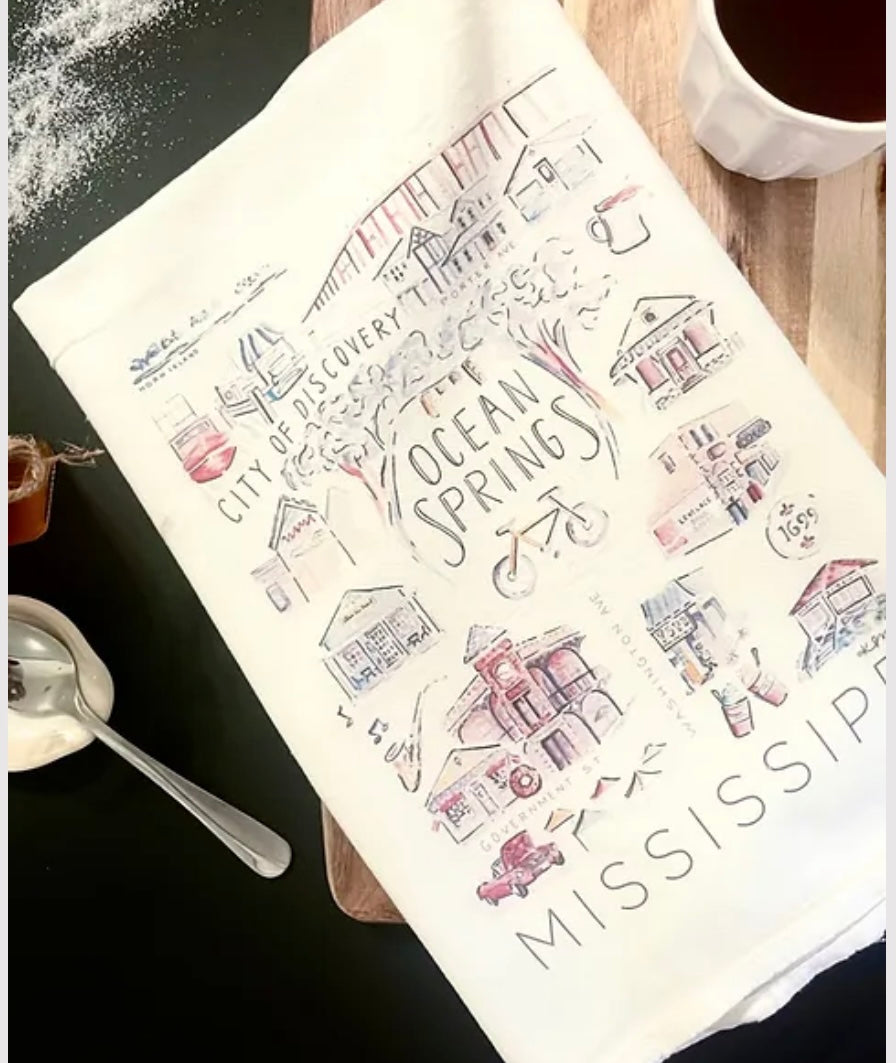 HORN ISLAND
PORTER AVE
CITY OF DISCOVERY
OCEAN
SPRINGS
1699
WASHINGTON AVE
GOVERNMENT ST
MISSISSIPP